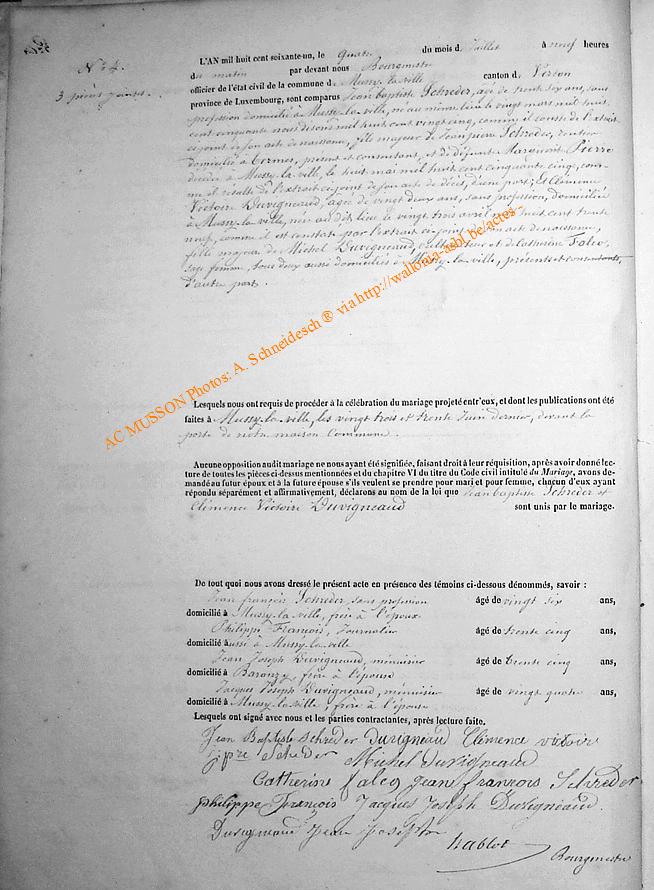 N° 4.
3 pièces jointes.
L'AN mil huit cent soixante-un, le quatre du mois d. Juillet à neuf heures
du matin par devant nous Bourgmestre
officier de l'état civil de la commune d. Mussy-la-ville canton d. Virton
province de Luxembourg, sont comparus Jean Baptiste Schréder, agé de trente six ans, sans
profession domicilié à Mussy-la-ville, né au même lieu le vingt mars mil huit
cent cinquante nous disons mil huit cent vingt cinq, comme il conste de l'extrait
ci-joint de son acte de naissance, fils majeur de Jean pierre Schréder, rentier
domicilié à present et consentant, et de défunte Marguerite Pierre
décédée à Mussy-la-ville, le huit mai mil huit cent cinquante cinq, com-
me il résulte de l'extrait ci-joint de son acte de décès, d'une part; Et Clémence
Victoire Duvigneaud, agée de vingt deux ans, sans profession, domiciliée
à Mussy-la-ville, née au dit lieu le vingt trois avril mil huit cent trente
neuf, comme il est constaté par l'extrait ci-joint de son acte de naissance,
fille majeure de Michel Duvigneaud, cultivateur et de Catherine Falcq,
sage femme, tous deux aussi domiciliés à Mussy-la-ville, présents et consentants,
d'autre part.
Lesquels nous ont requis de procéder à la célébration du mariage projeté entr'eux, et dont les publications ont été
faites à Mussy-la-ville, les vingt trois et trente Juin dernier, devant la
porte de notre maison Commune.
Aucune opposition audit mariage ne nous ayant été signifiée, faisant droit à leur réquisition, après avoir donné lec-
ture de toutes les pièces ci-dessus mentionnées et du chapitre VI du titre du Code civil intitulé du Mariage, avons de-
mandé au futur époux et à la future épouse s'ils veulent se prendre pour mari et pour femme, chacun d'eux ayant
répondu séparément et affirmativement, déclarons au nom de la loi que Jean baptiste Schréder et
Clémence Victoire Duvigneaud sont unis par le mariage.
De tout quoi nous avons dressé le présent acte en présence des témoins ci-dessous dénommés, savoir :
Jean françois Schréder, sans profession âgé de vingt six ans,
domicilié à Mussy-la-ville, frère à l'époux
Philippe François, Journalier âgé de trente cinq ans,
domicilié aussi à Mussy-la-ville
Jean Joseph Duvigneaud, menuisier âgé de trente cinq ans,
domicilié à Baranzy, frère à l'épouse
Jacques Joseph Duvigneaud, menuisier âgé de vingt quatre ans,
domicilié à Mussy-la-ville, frère à l'épouse
Lesquels ont signé avec nous et les parties contractantes, après lecture faite.
Jean Baptiste Schréder Duvigneaud Clémence victoire
jpre Schréder Michel Duvigneaud
Catherine falcq jean françois Schréder
philippe françois Jacques Joseph Duvigneaud.
Duvigneaud Jean Joseph
Bourgmestre
AC MUSSON Photos: A. Schneidesch ® via http://wallonia-asbl.be/actes -